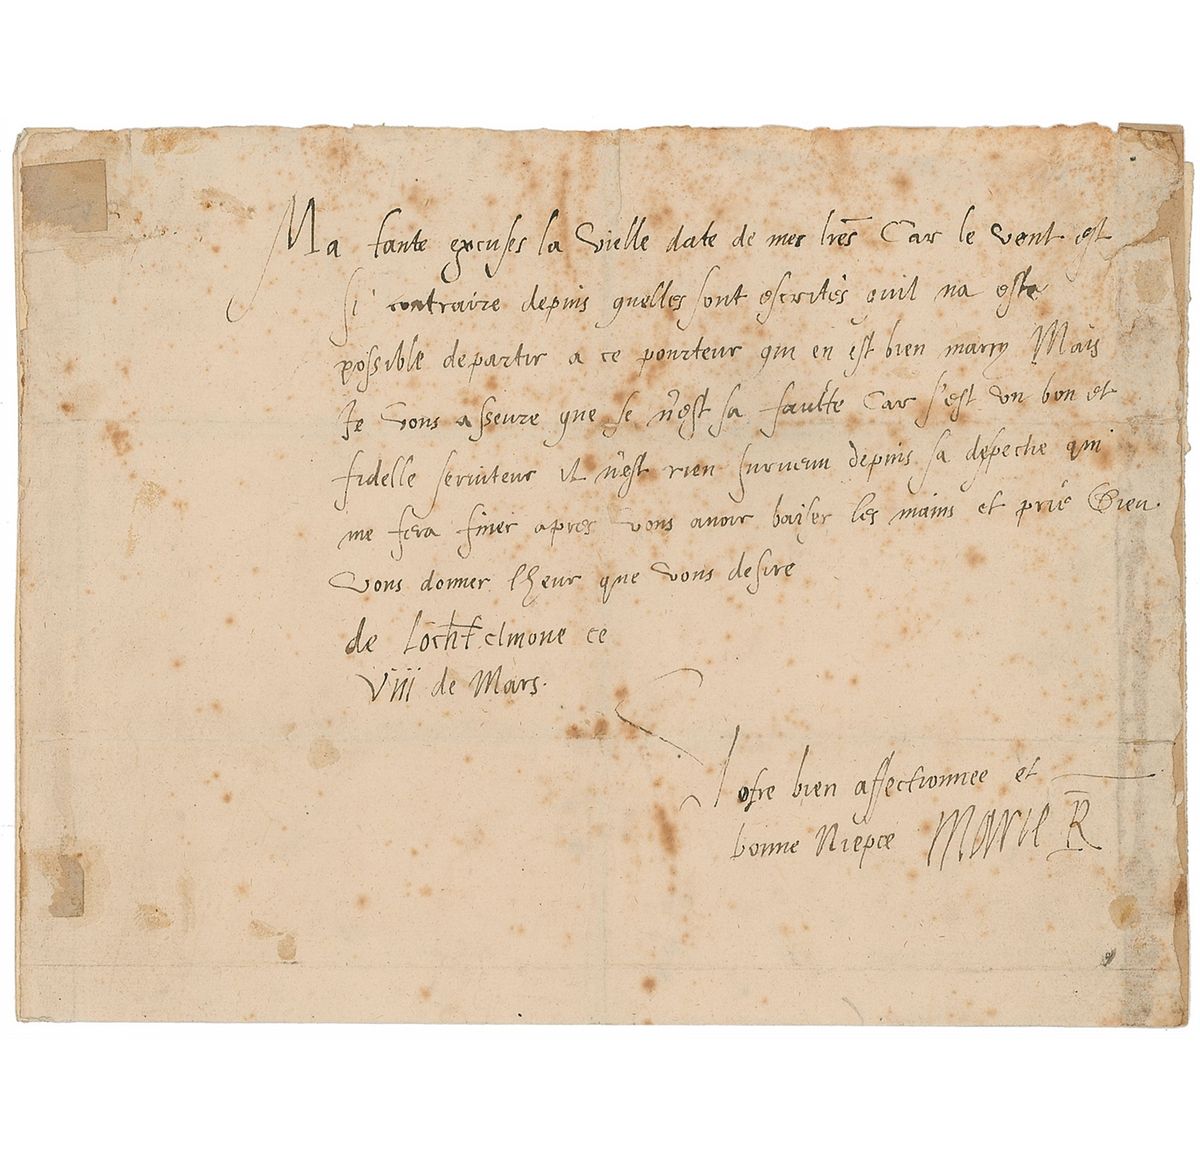 Ma tante excuses la vielle date de mes lr̃es Car le vent est
si contraire depuis quelles sont escrites quil na este
possible departir a ce pourteur qui en est bien marry Mais
Je vous asseure que se n'est sa faulte Car s'est un bon et
fidelle seruiteur il n'est rien suruenu depuis sa despeche qui
me fera finer apres vous auoir baiser les mains et prie Dieu
vous donner lheur que vous desire
de Lochtelmoue ce
viii de Mars.
Vostre bien affectionnee et
bonne Niepce Marie R